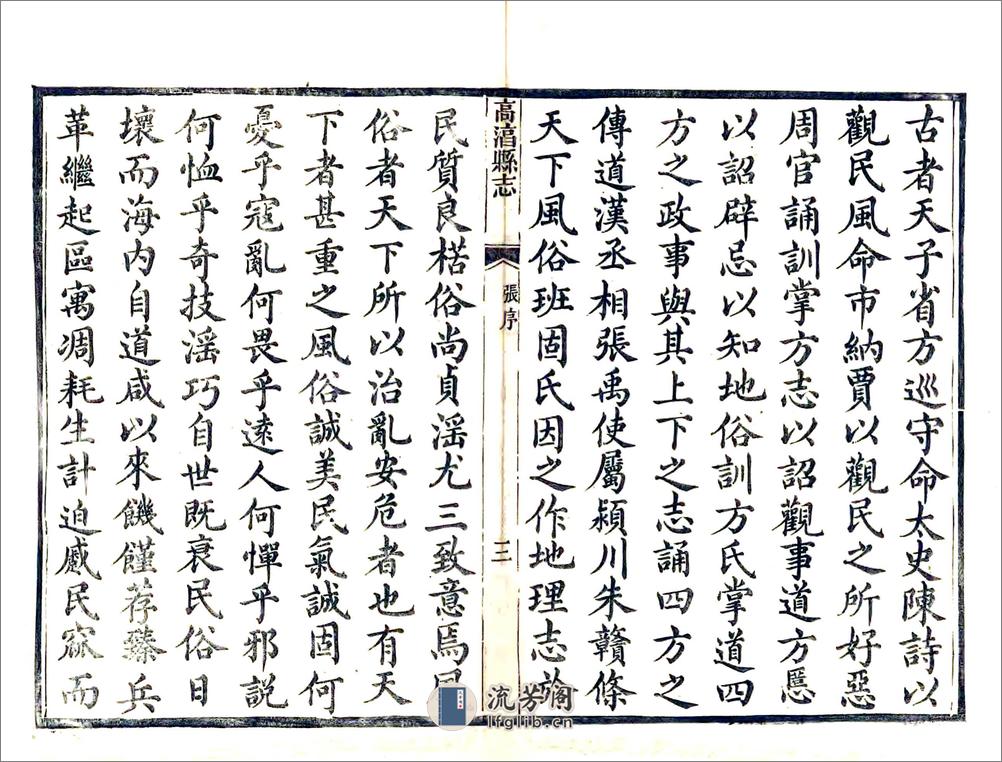 古者天子省方巡守命太史陳詩以
觀民風命市納賈以觀民之所好惡
周官誦訓掌方志以詔觀事道方慝
以詔辟忌以知地俗訓方氏掌道四
方之政事與其上下之志誦四方之
傳道漢丞相張禹使屬潁川朱贛條
天下風俗班固氏因之作地理志於
高湻縣志
張序
三
民質良楛俗尚貞淫尤三致意焉風
俗者天下所以治亂安危者也有天
下者甚重之風俗誠美民氣誠固何
憂乎寇亂何畏乎遠人何憚乎邪説
何恤乎奇技淫巧自世既衰民俗日
壞而海内自道咸以來饑饉荐臻兵
革繼起區寓凋耗生計迫蹙民窳而
流芳阁
lfglib.cn